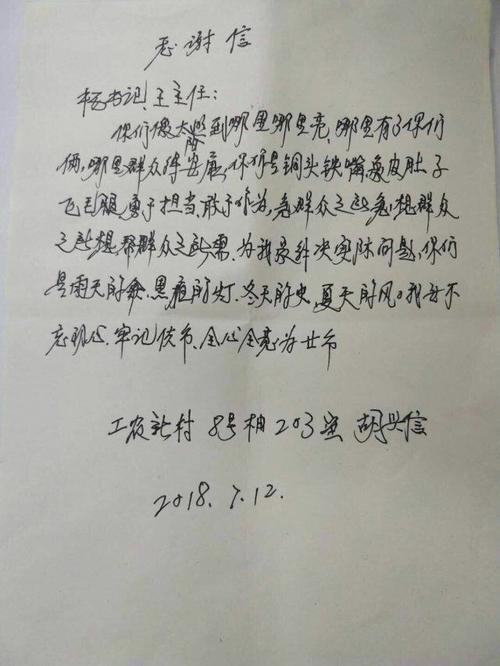 感谢信
杨书记,王主任:
你们像太阳照到哪里哪里亮,哪里有了你们
俩,哪里群众得安康,你们是铜头铁嘴象皮肚子
飞毛腿,勇于担当,敢于作为,急群众之所急,想群众
之所想,帮群众之所需,为我家解决实际问题,你们
是雨天的伞,黑夜的灯,冬天的火,夏天的风。我
忘初心,牢记使命,全心全意为
工农新村 8号 203室 胡兴信
2018.7.12.